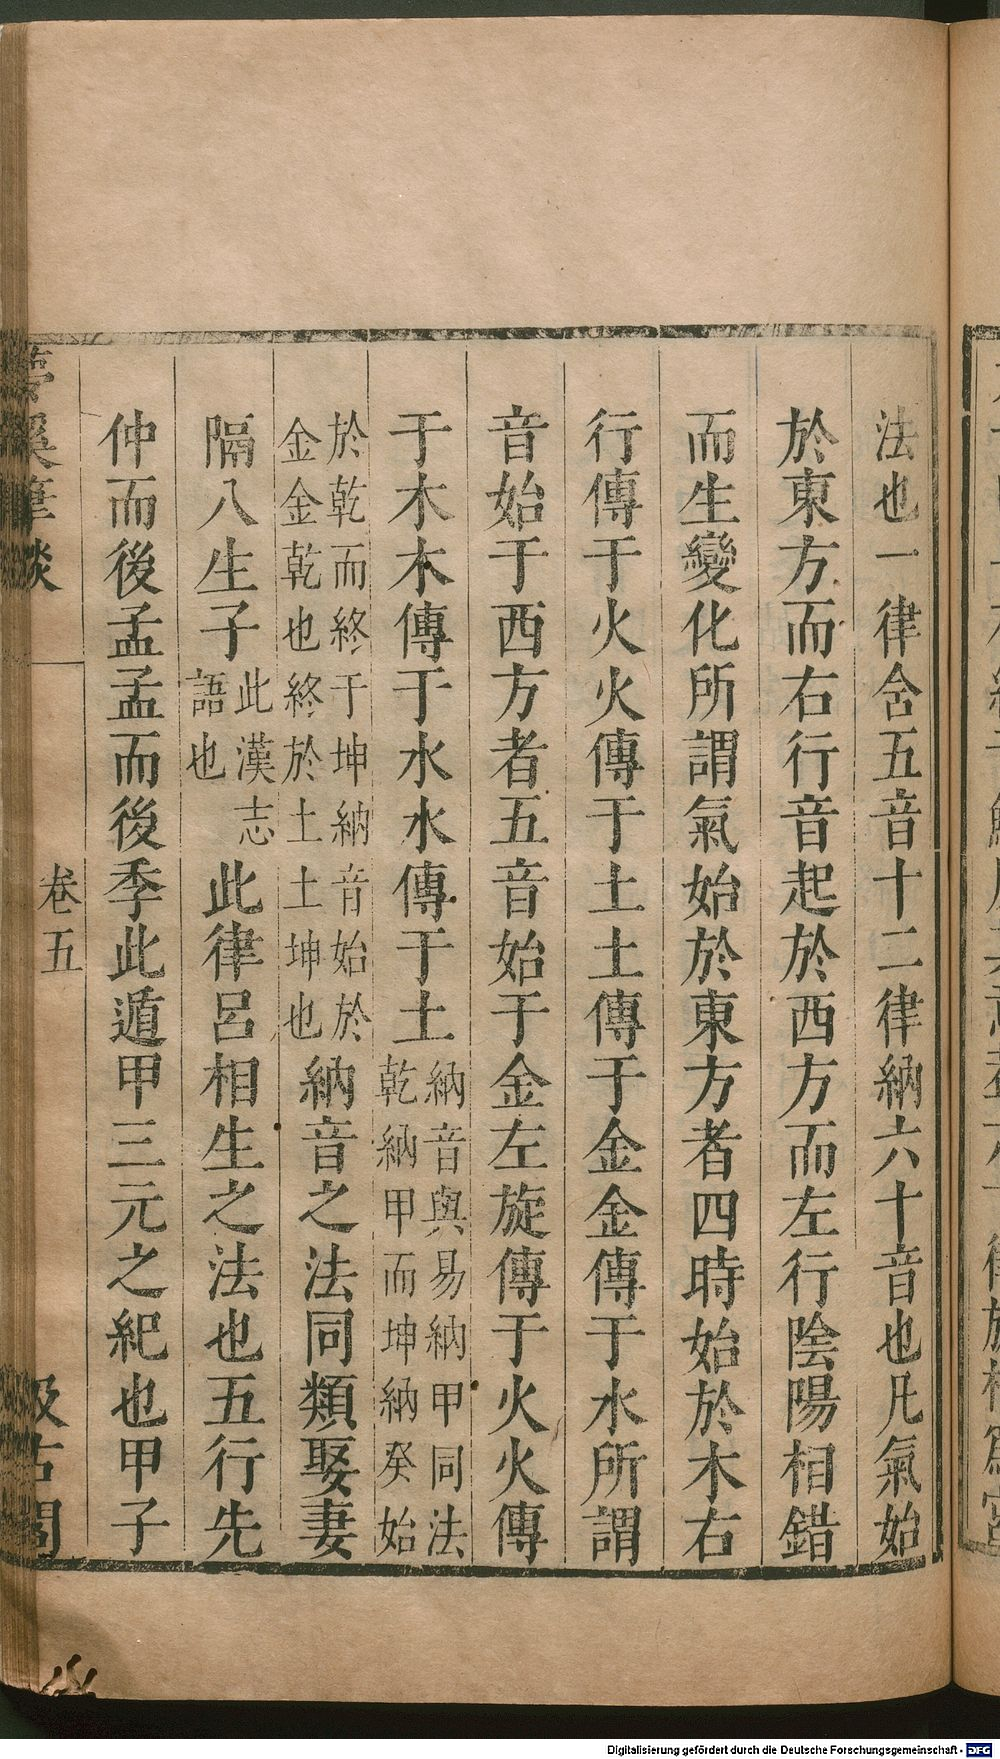 法也一律含五音十二律納六十音也凡氣始
於東方而右行音起於西方而左行陰陽相錯
而生變化所謂氣始於東方者四時始於木右
行傳于火火傳于土土傳于金金傳于水所謂
音始于西方者五音始于金左旋傳于火火傳
于木木傳于水水傳于土納音與易納甲同法
乾納甲而坤納癸始
於乾而終于坤納音始於
金金乾也終於土土坤也
納音之法同類娶妻
隔八生子此漢志
語也
此律呂相生之法也五行先
仲而後孟孟而後季此遁甲三元之紀也甲子
夢溪筆談 卷五 汲古閣
Digitalisierung gefördert durch die Deutsche Forschungsgemeinschaft - DFG